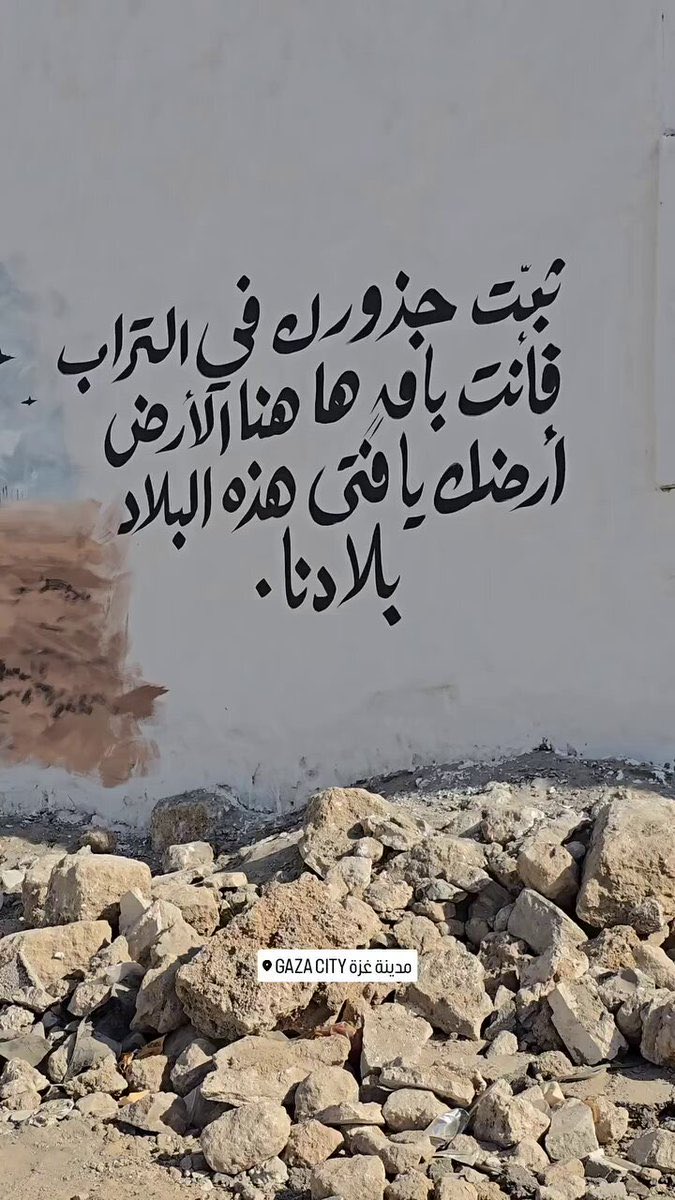 ثبّت جذورك في التراب
فأنت باقٍ ها هنا الأرض
أرضك يا فتى هذه البلاد
بلادنا.
GAZA CITY مدينة غزة